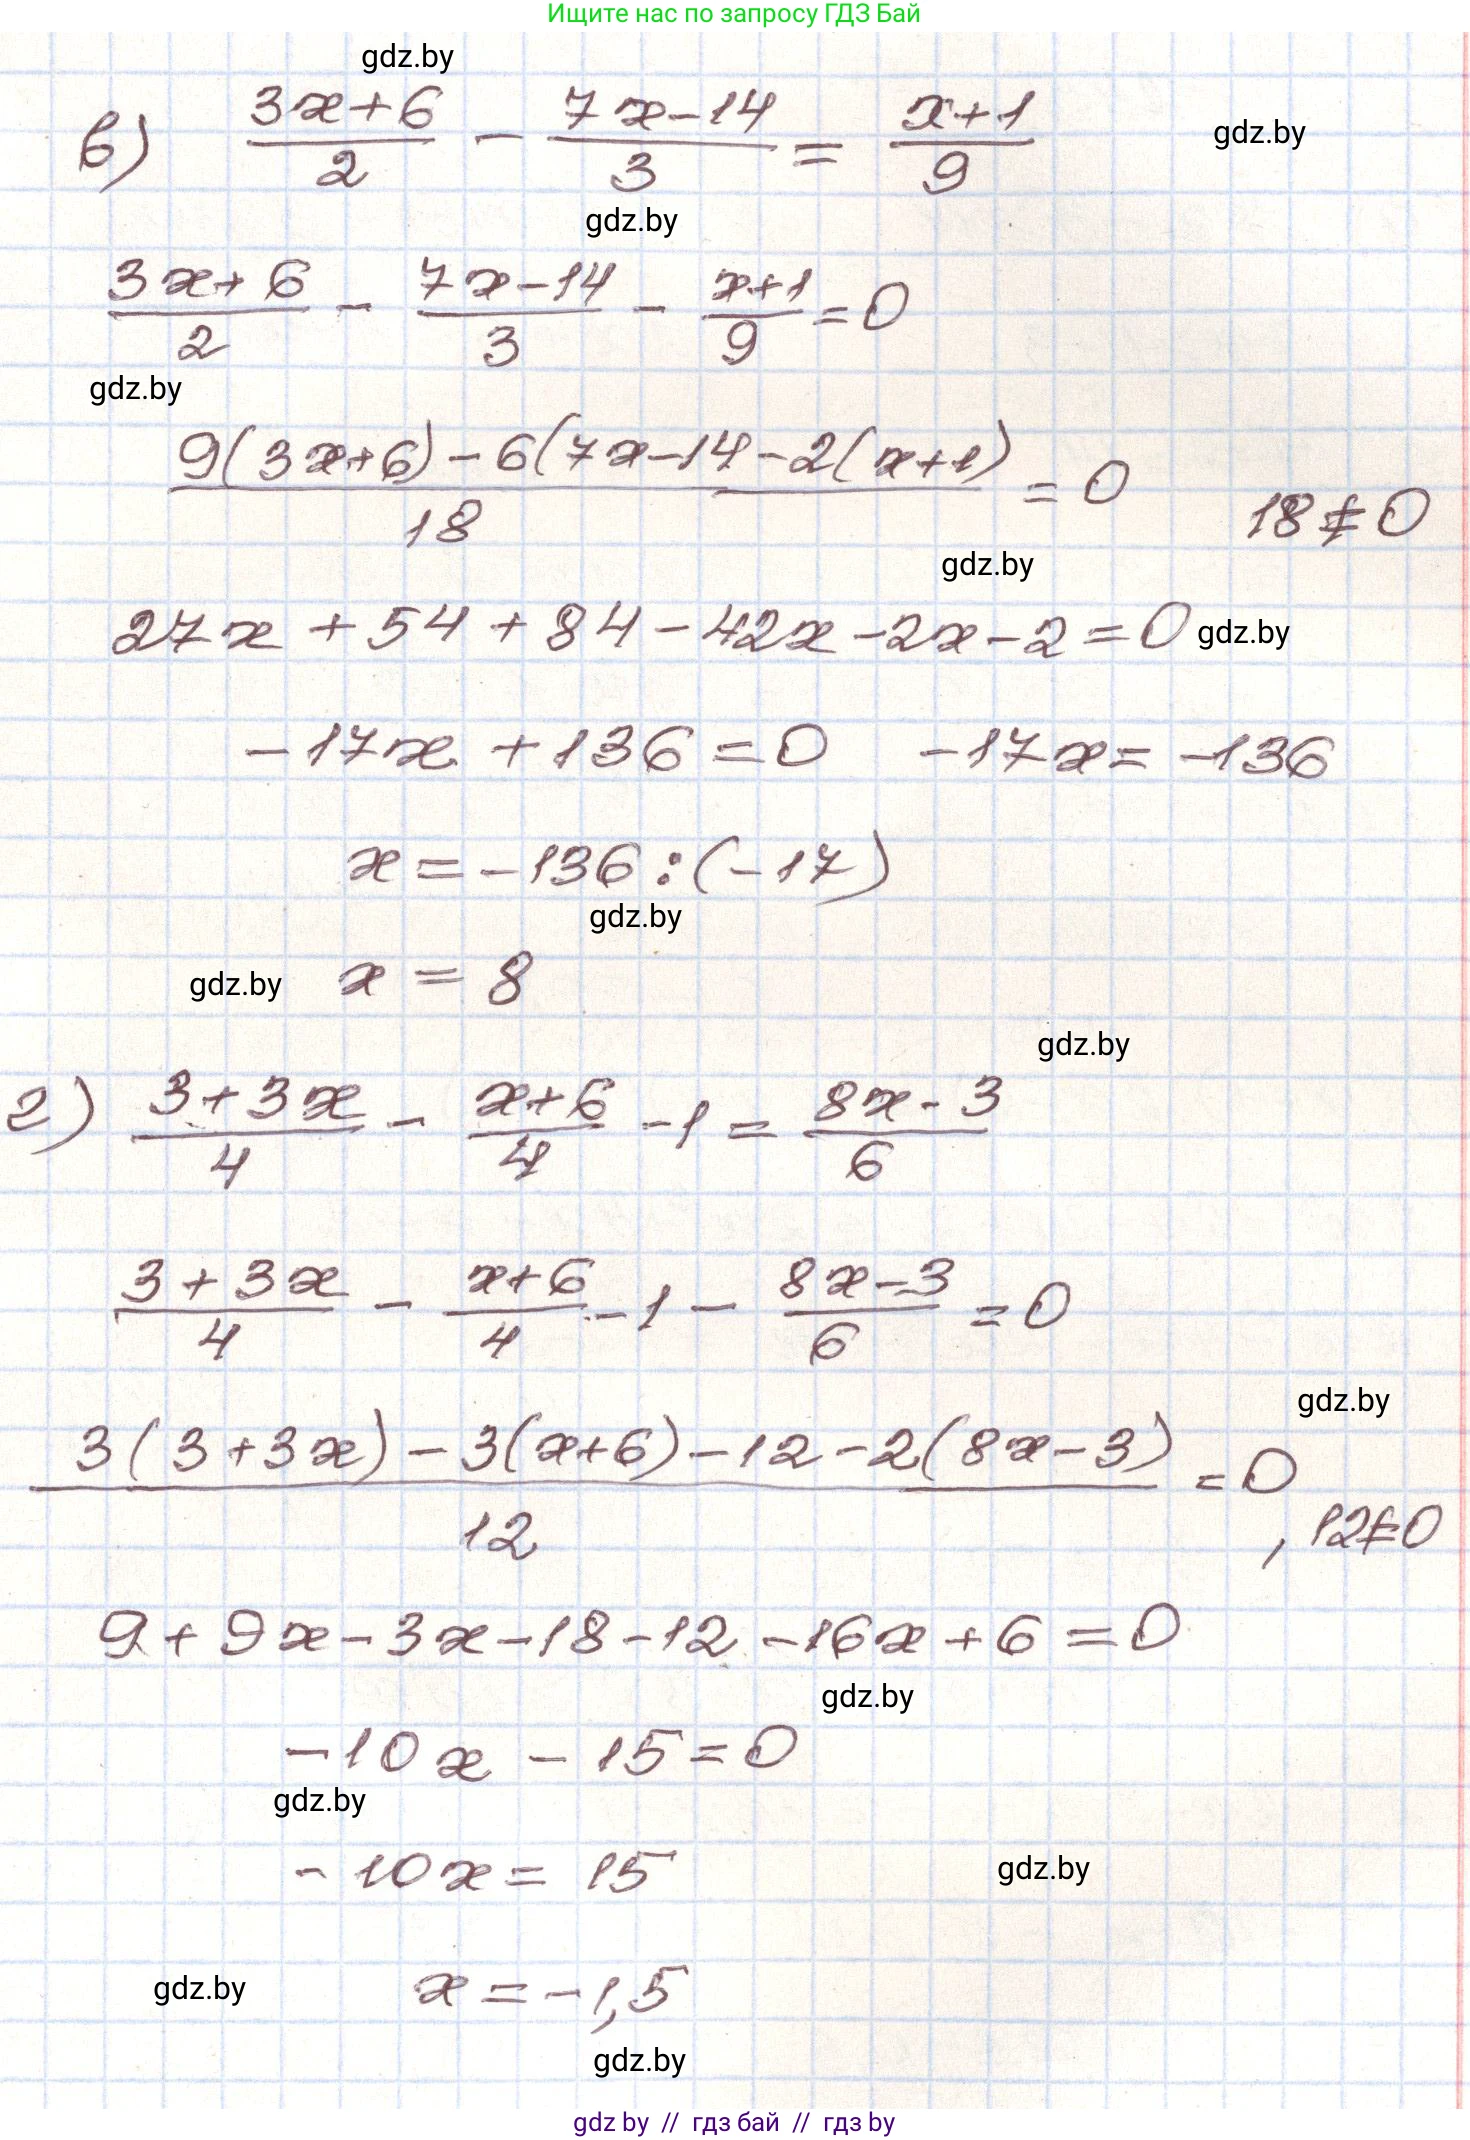 Ищите нас по запросу ГДЗ Бай
gdz.by
в) (3x+6)/2 - (7x-14)/3 = (x+1)/9
gdz.by
gdz.by
(3x+6)/2 - (7x-14)/3 - (x+1)/9 = 0
gdz.by
(9(3x+6)-6(7x-14-2(x+1))/18 = 0 18≠0
gdz.by
27x + 54 + 84 - 42x - 2x - 2 = 0
gdz.by
-17x + 136 = 0 -17x = -136
x = -136 : (-17)
gdz.by
gdz.by
x = 8
gdz.by
г) (3+3x)/4 - (x+6)/4 - 1 = (8x-3)/6
(3+3x)/4 - (x+6)/4 - 1 - (8x-3)/6 = 0
gdz.by
(3(3+3x)-3(x+6)-12-2(8x-3))/12 = 0, 12≠0
9+9x-3x-18-12-16x+6=0
gdz.by
-10x - 15 = 0
gdz.by
-10x = 15
gdz.by
gdz.by
x = -1,5
gdz.by
gdz by // гдз бай // гдз by